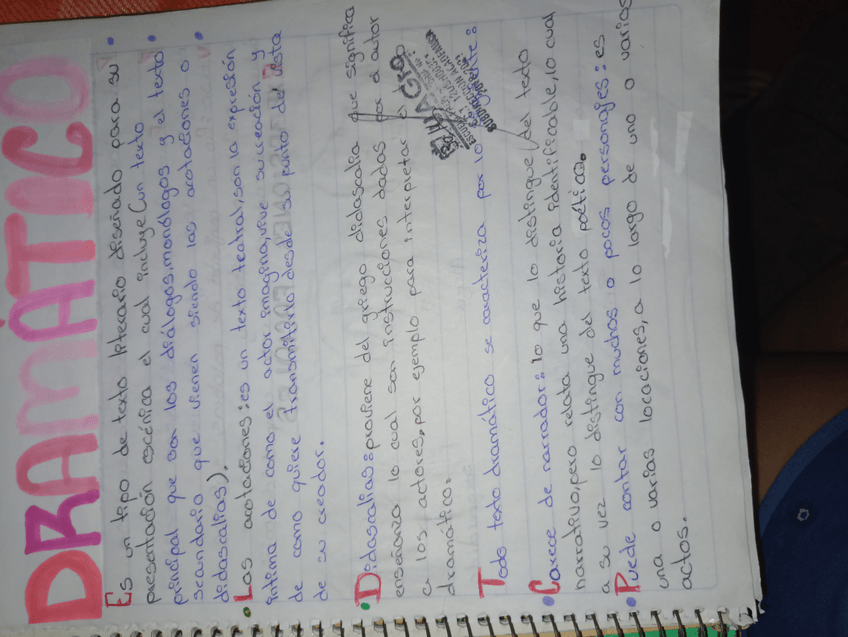 DRAMÁTICO
Es un tipo de texto literario diseñado para su
presentación escénica el cual incluye(un texto
principal que son los diálogos,monólogos y el texto
secundario que vienen siendo las acotaciones o
didascalias).
Las acotaciones:es un texto teatral,son la expresión
intima de como el actor imagina,vive su creación y
de como quiere transmitirlo desde su punto de vista
de su creador.
Didascalias:proviene del griego didascalia que significa
enseñanza lo cual son instrucciones dadas por el autor
a los actores,por ejemplo para interpretar el
dramático.
Todo texto dramático se caracteriza por lo siguiente:
Carece de narrador:lo que lo distingue del texto
narrativo,pero relata una historia identificable,lo cual
a su vez lo distingue del texto poético.
Puede contar con muchos o pocos personajes:es
una o varias locaciones,a lo largo de uno o varios
actos.